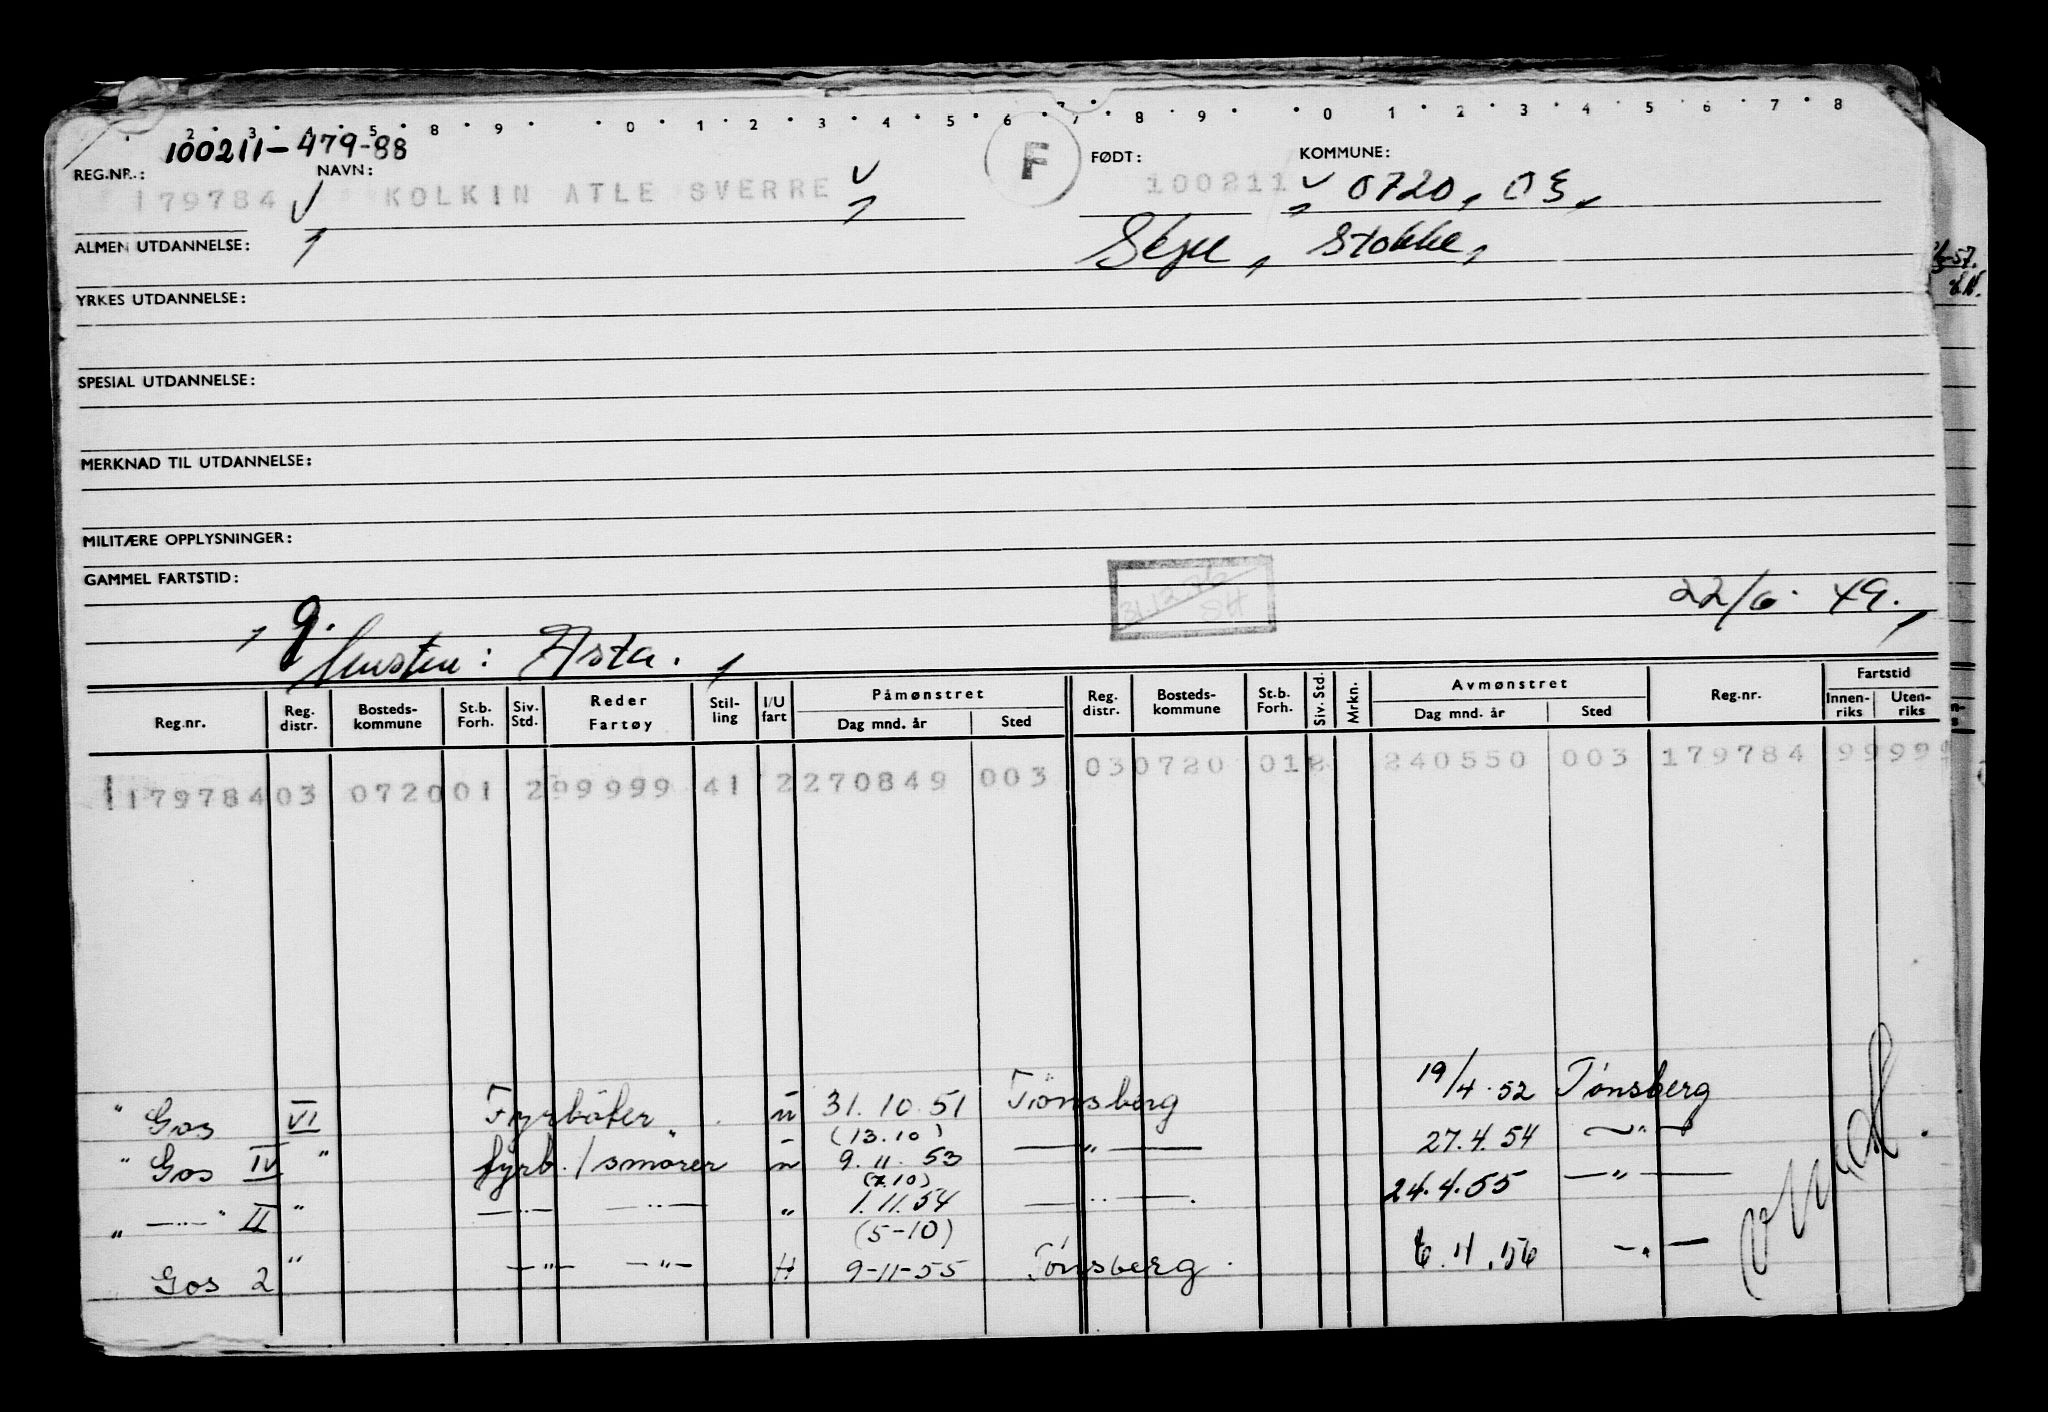 2 3 4 5 8 9 0 1 2 3 4 5 6 7 8 9 0 1 2 3 4 5 6 7 8
100211-479-88
REG.NR.: NAVN: F FØDT: KOMMUNE:
179784 KOLKIN ATLE SVERRE 100211 0720, 03,
ALMEN UTDANNELSE: Skjee, Stokke,
YRKES UTDANNELSE:
SPESIAL UTDANNELSE:
MERKNAD TIL UTDANNELSE:
MILITÆRE OPPLYSNINGER:
GAMMEL FARTSTID: 31.12.76 SH 22/6. 49.
g. Hustru: Asta.
Reg.nr. Reg. distr. Bosteds-kommune St.b. Forh. Siv. Std. Reder Fartøy Stil-ling I/U fart Påmønstret Dag mnd. år Sted Reg. distr. Bosteds-kommune St.b. Forh. Siv. Std. Mrkn. Avmønstret Dag mnd. år Sted Reg.nr. Fartstid Innen-riks Uten-riks
179784 03 0720 01 2 99999 41 2 270849 003 03 0720 01 2 240550 003 179784 9999
" Gos VI Fyrbøter u 31.10.51 Tönsberg 19/4.52 Tønsberg
(13.10)
" Gos IV " fyrb./smører " 9.11.53 —"— 27.4.54 —"—
(7.10)
" —"— II " —"— —"— " 1.11.54 —"— 24.4.55 —"—
(5-10)
Gos 2 " —"— —"— 9-11-55 Tønsberg 6.4.56 —"—